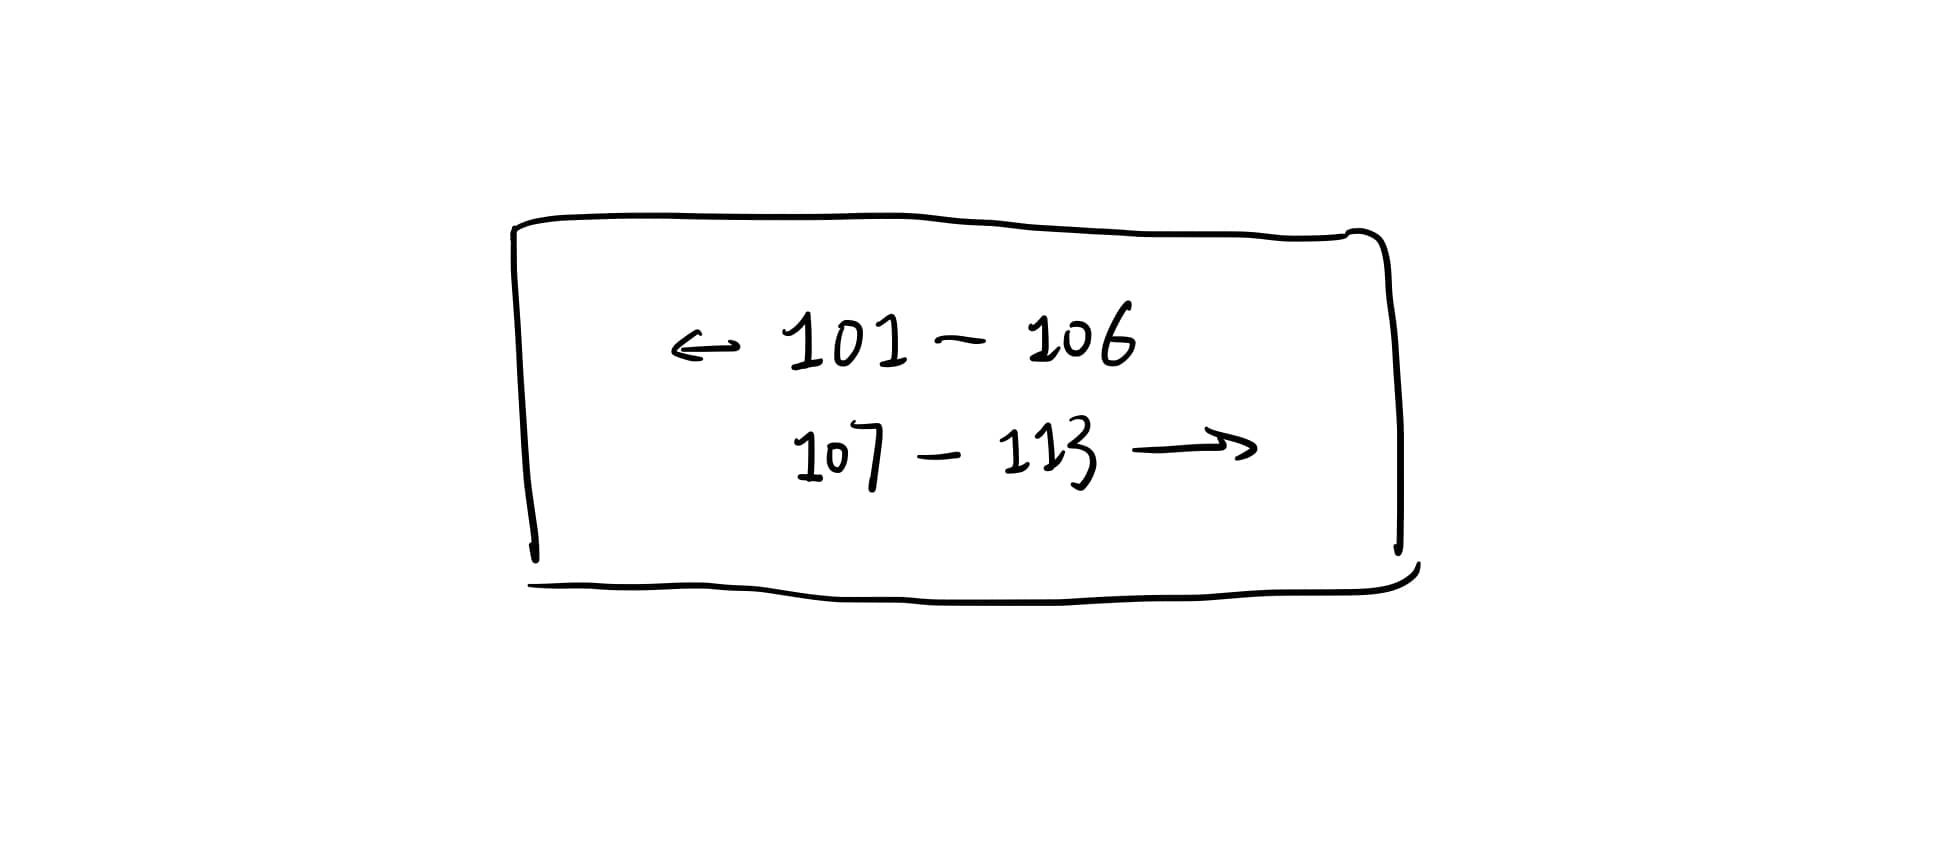 ← 101 – 106
107 – 113 →